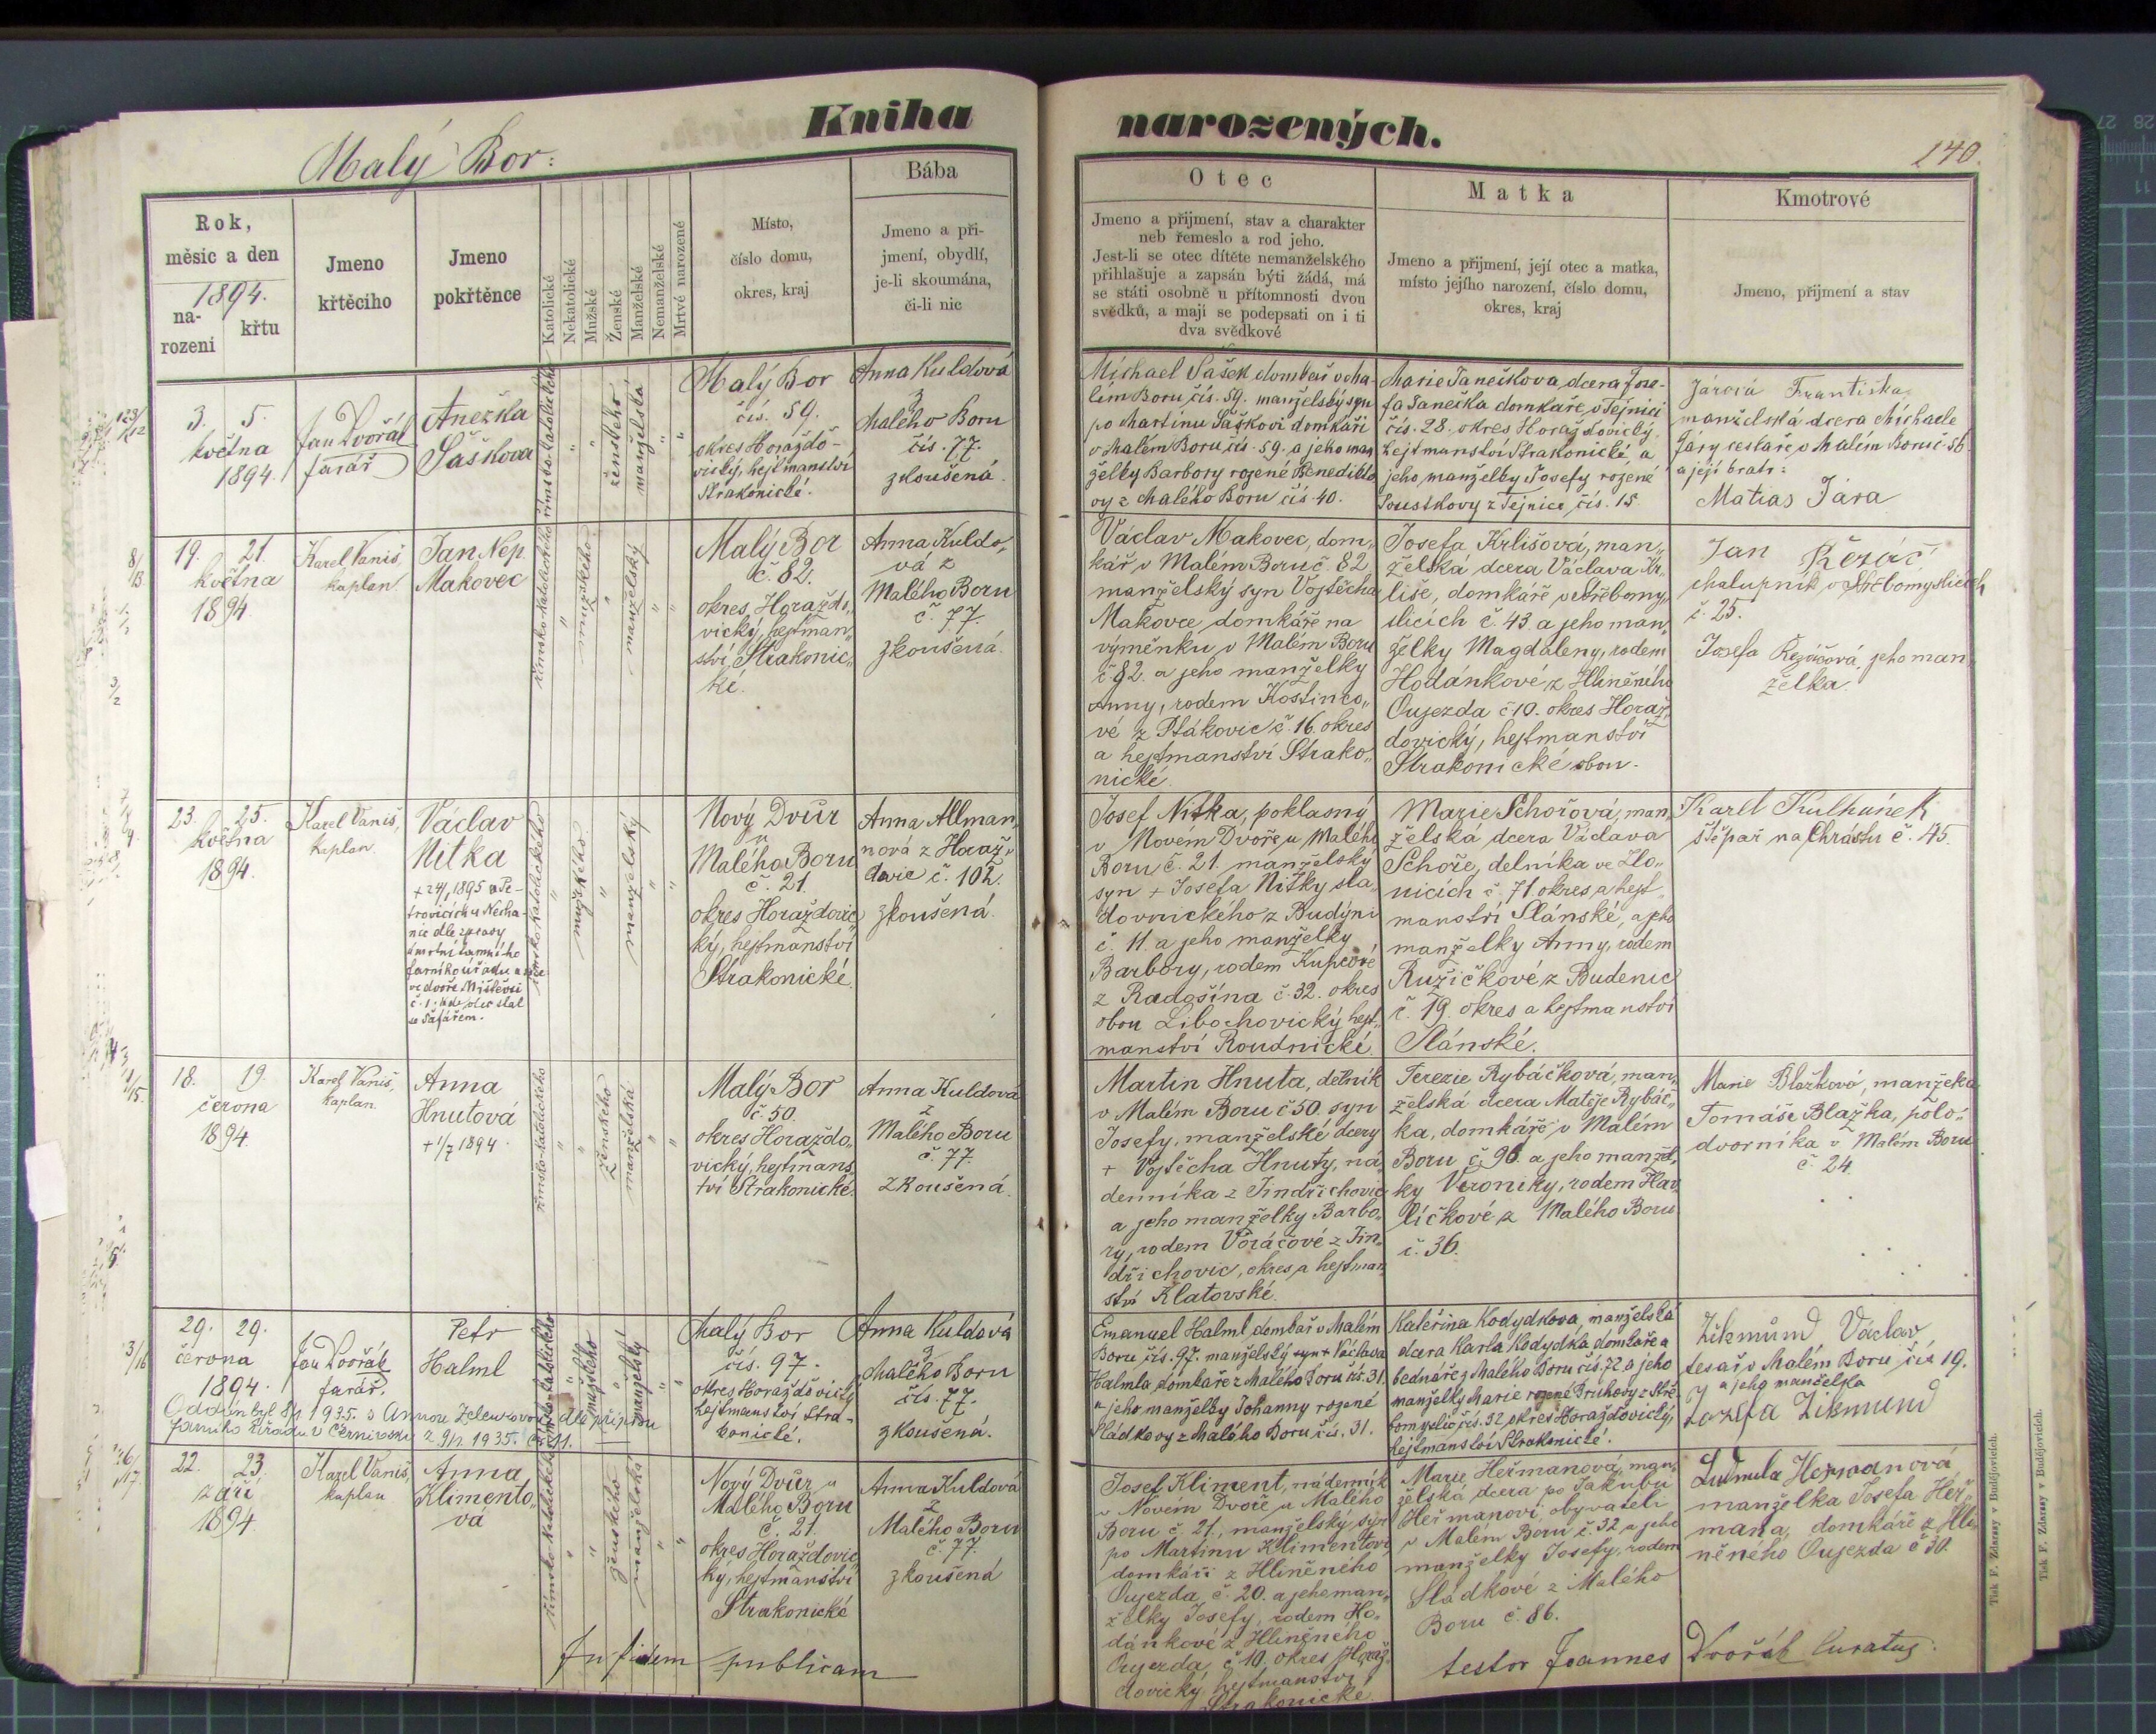 Kniha narozených.
Malý Bor:
140.
Rok,
měsíc a den
1894.
na-
rozeni
křtu
Jmeno
křtěcího
Jmeno
pokřtěnce
Katolické
Nekatolické
Mužské
Ženské
Manželské
Nemanželské
Mrtvé narozené
Místo,
číslo domu,
okres, kraj
Bába
Jmeno a při-
jmení, obydlí,
je-li skoumána,
či-li nic
Otec
Jmeno a přijmení, stav a charakter
neb řemeslo a rod jeho.
Jest-li se otec dítěte nemanželského
přihlašuje a zapsán býti žádá, má
se státi osobně u přítomnosti dvou
svědků, a mají se podepsati on i ti
dva svědkové
Matka
Jmeno a přijmení, její otec a matka,
místo jejího narození, číslo domu,
okres, kraj
Kmotrové
Jmeno, přijmení a stav
3. 5.
května
1894.
Jan Dvořák
farář
Anežka
Šáškova
římsko-katolické
ženského
manželská
Malý Bor
čís. 59.
okres Horažďo-
vický, hejtmanství
Strakonické.
Anna Kuldová
z
Malého Boru
čís. 77.
zkoušená.
Michael Šašek domkař v Ma-
lém Boru čís. 59. manželský syn
po Martinu Šaškovi domkáři
v Malém Boru čís. 59. a jeho man
želky Barbory rozené Benedikto
vy z Malého Boru čís. 40.
Marie Janečkova, dcera Jose-
fa Janečka domkaře v Tejnici
čís. 28. okres Horažďovický,
hejtmanství Strakonické a
jeho manželky Josefy rozené
Soustkovy z Tejnice čís. 15.
Járová Františka,
manželská dcera Michaele
Járy cestaře v Malém Boru č. 56.
a její bratr:
Matias Jára
19. 21.
května
1894
Karel Vaniš,
kaplan
Jan Nep.
Makovec
římsko-katolického
mužského
manželský
Malý Bor
č. 82.
okres Horaždo„
vický, hejtman„
ství Strakonic„
ké.
Anna Kuldo„
vá z
Malého Boru
č. 77.
zkoušená.
Václav Makovec, dom„
kář v Malém Boru č. 82
manželský syn Vojtěcha
Makovce domkáře na
výměnku v Malém Boru
č. 82. a jeho manželky
Anny, rodem Kostinco„
vé z Ptákovic č. 16. okres
a hejtmanství Strako„
nické.
Josefa Krlišová, man„
želská dcera Václava Kr„
liše, domkáře v Střebomy„
slicích č. 43 a jeho man„
želky Magdaleny, rodem
Hodánkové z Hliněného
Oujezda č 10. okres Horaž„
dovický, hejtmanství
Strakonické obou.
Jan Řezáč
chalupník v Střebomyslicích
č. 25.
Josefa Řezáčová, jeho man
želka.
23. 25.
května
1894
Karel Vaniš,
kaplan.
Václav
Nitka
+ 24/1 1895 v Pe-
trovicích u Necha-
nic dle zprávy
úmrtní tamního
farního úřadu a sice
ve dvoře Mištěvsi
č. 1. kde otec stal
se šafářem.
římsko-katolického
mužského
manželský
Nový Dvůr
u
Malého Boru
č. 21.
okres Horaždovic„
ký, hejtmanství
Strakonické.
Anna Allman„
nová z Horaž„
dovic č. 102.
zkoušená.
Josef Nitka, poklasný
v Novém Dvoře u Malého
Boru č. 21. manželský
syn + Josefa Nitky sla„
dovnického z Budyni
č. 11. a jeho manželky
Barbory, rodem Kupcové
z Radošína č. 32. okres
obou Libochovický hejt„
manství Roudnické.
Marie Schořová, man„
želská dcera Václava
Schoře, delníka ve Zlo„
nicích č. 71 okres a hejt„
manství Slánské, a jeho
manželky Anny, rodem
Ružičkové z Budenic
č. 19. okres a hejtmanství
Slánské.
Karel Kulhánek
štěpař na Chrastu č. 45.
18. 19.
června
1894.
Karel Vaniš,
kaplan.
Anna
Hnutová
+ 1/7 1894.
římsko-katolického
ženského
manželská
Malý Bor
č. 50.
okres Horaždo„
vický, hejtmans„
tví Strakonické.
Anna Kuldová
z
Malého Boru
č. 77.
zkoušená.
Martin Hnuta, delník
v Malém Boru č 50. syn
Josefy, manželské dcery
+ Vojtěcha Hnuty, ná„
denníka z Jindřichovic
a jeho manželky Barbo„
ry, rodem Voráčové z Jin„
dřichovic, okres a hejtman
ství Klatovské.
Terezie Rybáčková, man„
želská dcera Matěje Rybáč„
ka, domkáře v Malém
Boru č. 96. a jeho manžel„
ky Veroniky, rodem Hav„
líčkové z Malého Boru
č. 36.
Marie Blažková, manželka
Tomáše Blažka, polo„
dvorníka v Malém Boru
č. 24.
29. 29.
června
1894.
Jan Dvořák
farář.
Petr
Halml
římsko-katolického
mužského
manželský
Oddán byl 8/1 1935. s Annou Zelenkovou dle přípisu
farního úřadu v Černivsku z 9/1 1935.
Malý Bor
čís. 97.
okres Horažďovický
hejtmanství Stra-
konické.
Anna Kuldová
z
Malého Boru
čís. 77.
zkoušená.
Emanuel Halml, domkař v Malém
Boru čís. 97. manželský syn + Václava
Halmla, domkaře z Malého Boru čís. 31.
a jeho manželky Johanny rozené
Sládkovy z Malého Boru čís. 31.
Kateřina Kodydkova, manželská
dcera Karla Kodydka domkaře a
bednáře z Malého Boru čís. 72 a jeho
manželky Marie rozené Pruhovy z Stře-
bomyslic čís. 32 okres Horažďovický,
hejtmanství Strakonické.
Zikmund Václav,
tesař v Malém Boru čís 19.
a jeho manželka
Jozefa Zikmund
22. 23.
září
1894.
Karel Vaniš,
kaplan
Anna
Klimento„
vá
římsko-katolického
ženského
manželská
Nový Dvůr u
Malého Boru
č. 21.
okres Horaždovic„
ký, hejtmanství
Strakonické
Anna Kuldová
z
Malého Boru
č. 77.
zkoušená
Josef Kliment, nádenník
v Novém Dvoře u Malého
Boru č. 21., manželský syn
po Martinu Klimentovi
domkáři z Hliněného
Oujezda č. 20. a jeho man„
želky Josefy, rodem Ho„
dánkové z Hliněného
Oujezda č 10. okres Horaž„
dovický, hejtmanství
Strakonické.
Marie Heřmanová, man„
želská dcera po Jakubu
Heřmanovi, obyvateli
v Malém Boru č. 32 a jeho
manželky Josefy, rodem
Sládkové z Malého
Boru č. 86.
Ludmila Heřmanová
manželka Josefa Heř„
mana, domkáře z Hli„
něného Oujezda č 30.
In fidem publicam
testor Joannes Dvořák Curatus.
Tisk F. Zdarssy v Budějovicích.
Tisk F. Zdarssy v Budějovicích.